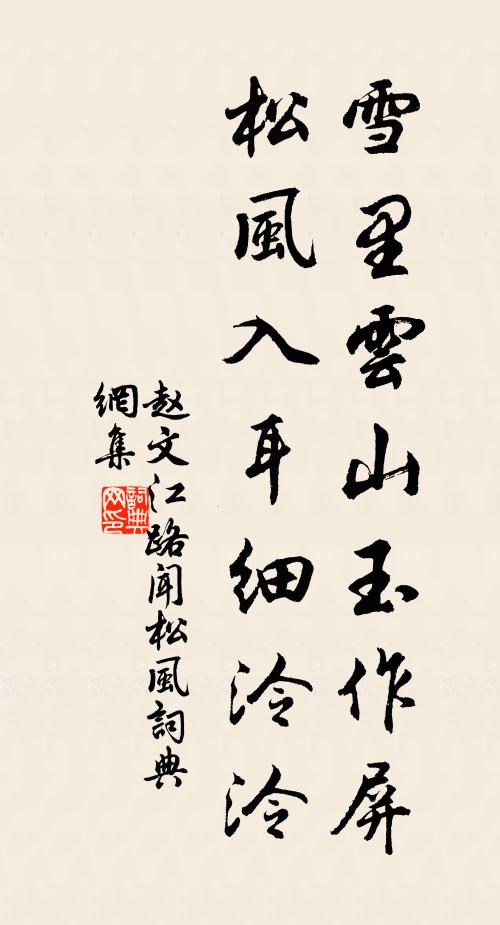 雪里雲山玉作屏
松風入耳細泠泠
赵文江路闻松風詞典
網集
詞典
网印